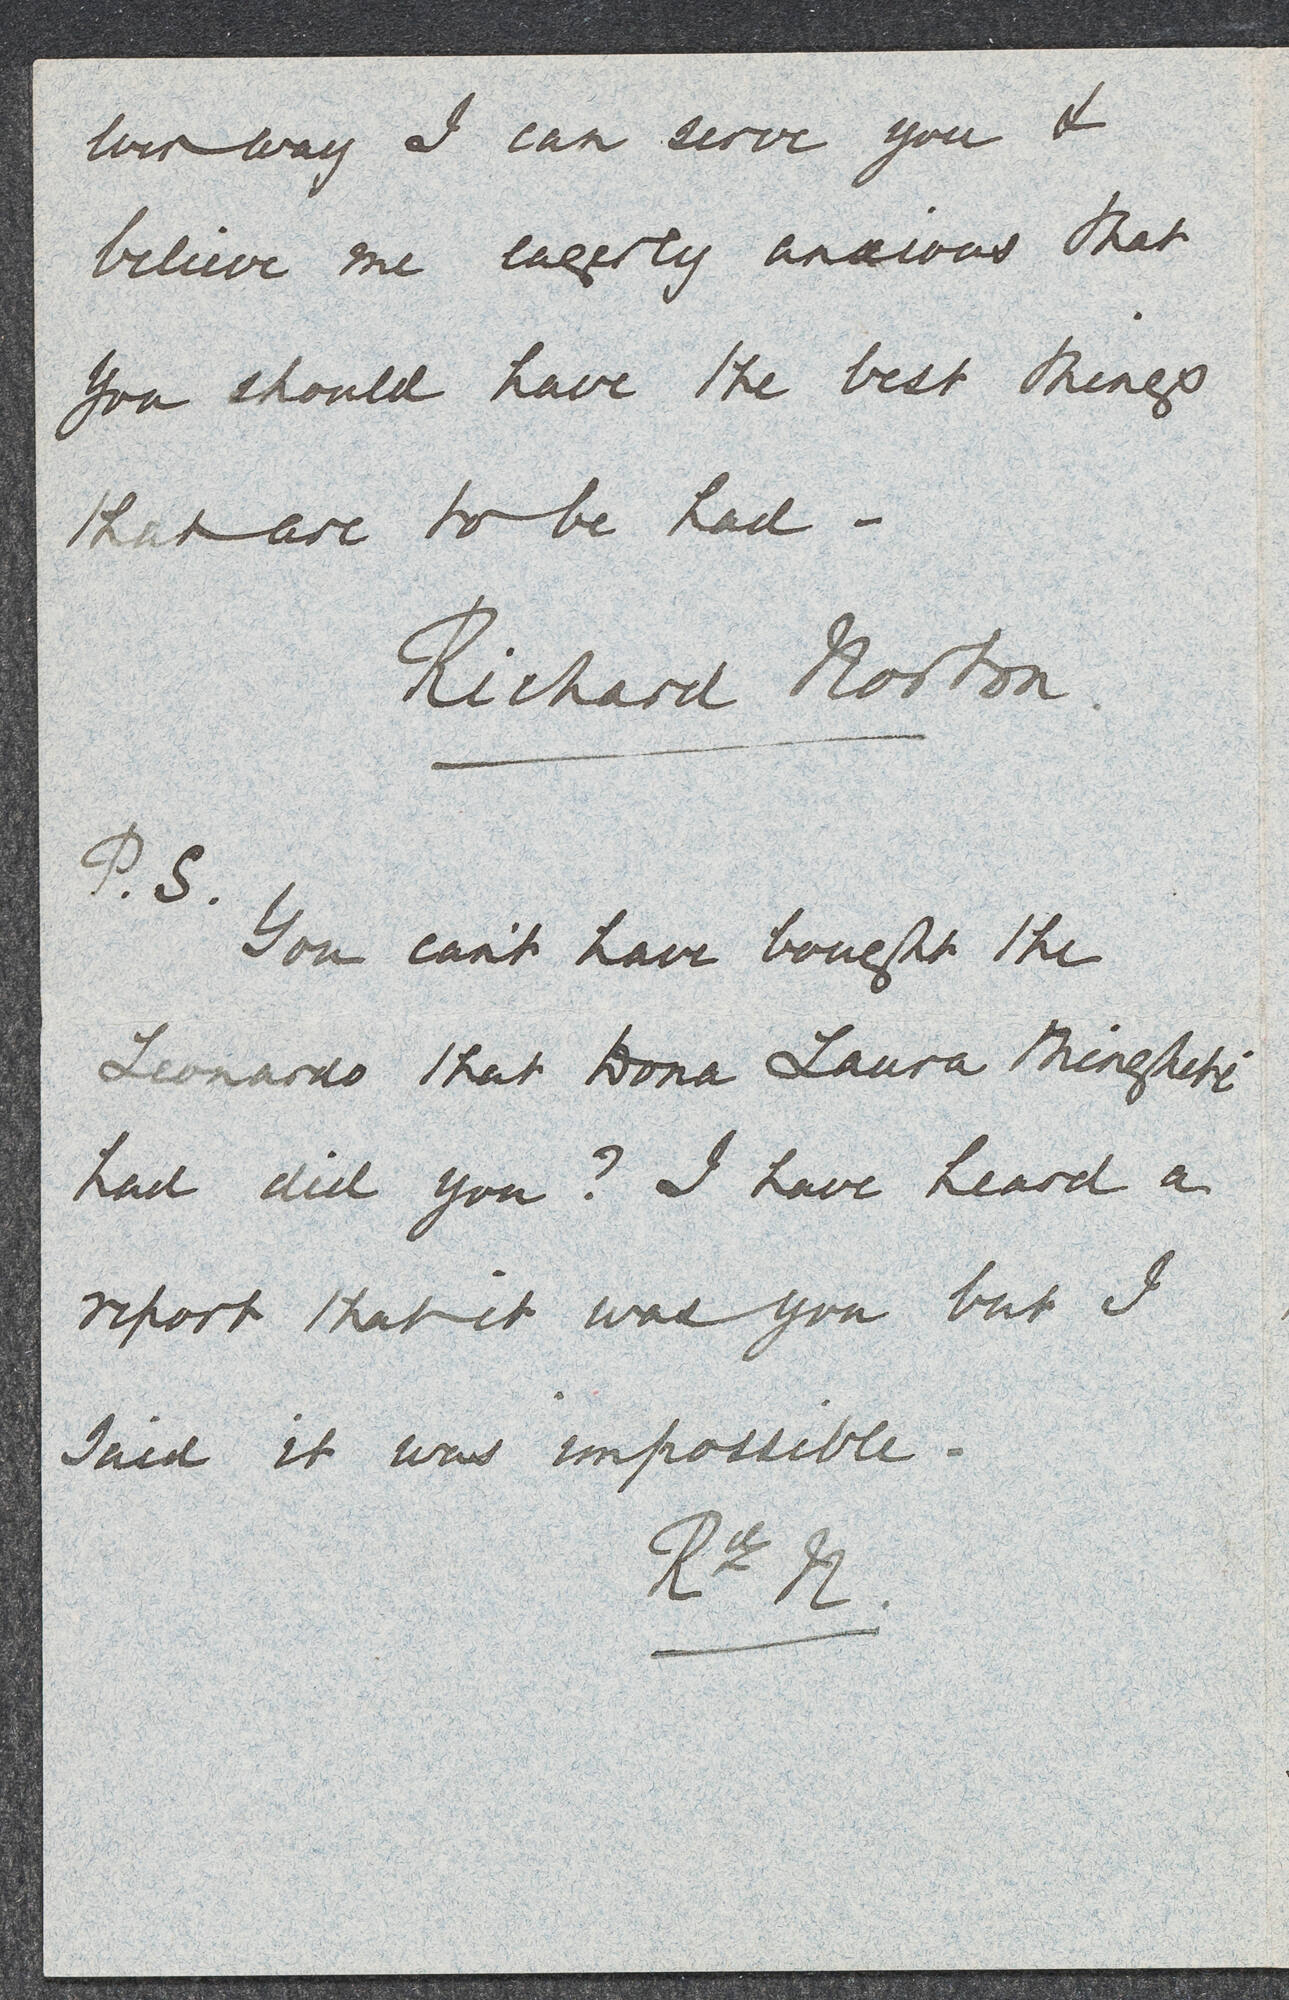 ever way I can serve you &
believe me eagerly anxious that
you should have the best things
that are to be had -
Richard Norton.
P.S.
You can't have bought the
Leonardo that Dona Laura Minghetti
had did you? I have heard a
report that it was you but I
said it was impossible -
Rd N.